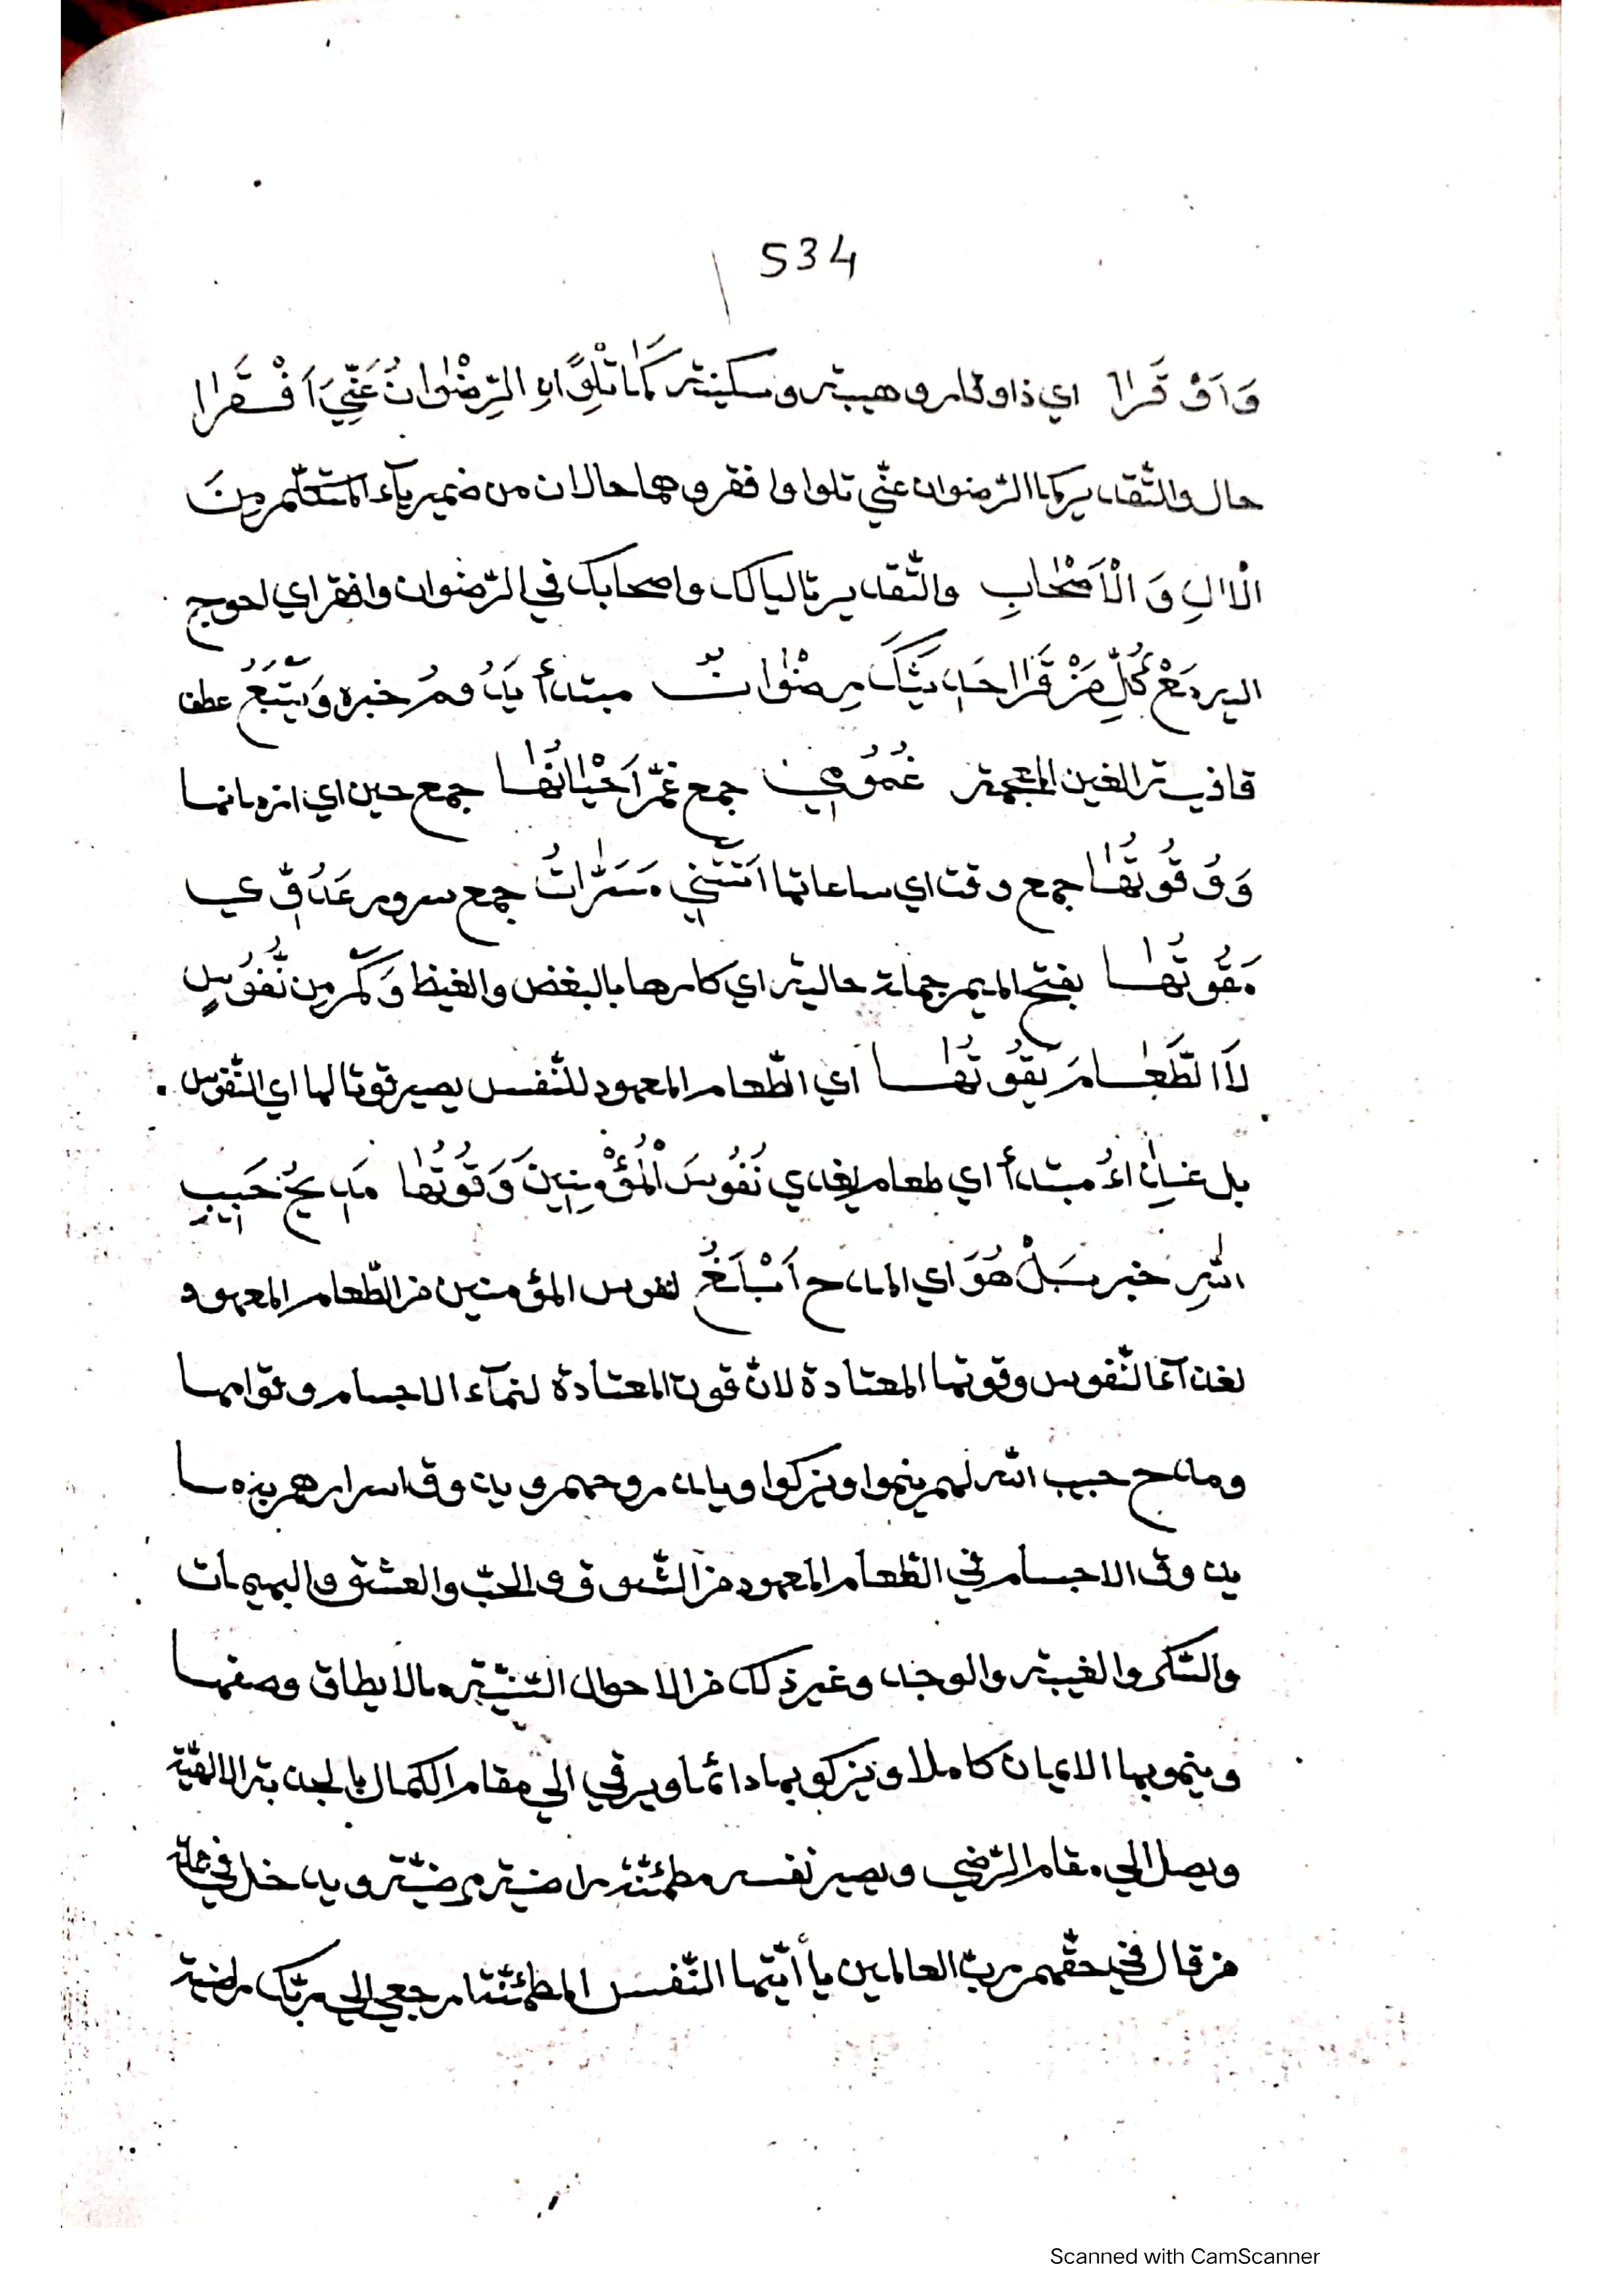 534
وَاَوْقَرَا اي ذا وقار وهيبة وسكينة كَمَا تِلْوًا بِهِ الرِّضْوَانُ عَنِّيَ اَفْقَرَا
حال والتّقدير كما الرّضوان عنّي تلوا وافقر وهما حالان من ضمير يآء المتكلّم مِنَ
الْاٰلِ وَالْاَصْحَابِ والتّقدير تاليا لك واصحابك في الرّضوان وافقر اي احوج
اليه مَعْ كُلِّ مَنْ قَرَا حَدِيثَكَ رِضْوَانٌ مبتدأ يَدُومُ خبره وَيَتْبَعُ عطف
قافية الغين المعجمة غُمُومِي جمع غمّ اَحْيَانُهَا جمع حين اي ازمانها
وَوُقُوتُهَا جمع وقت اي ساعاتها اَتَتْنِي مَسَرَّاتُ جمع سرور عَدُوِّي
مَقُوتُهَا بفتح الميم جملة حالية اي كارها بالبغض والغيظ وَكَمْ مِن نُّفُوسٍ
لاَ الطَّعَامَ يَقُوتُهَا اي الطّعام المعهود للنّفس يصير قوتا لها اي النّفوس
بل غِذَاءُ مبتدأ اي طعام يغذي نُفُوسَ الْمُؤْمِنِينَ وَقُوتُهَا مَدِيحُ حَبِيبِ
اللهِ خبر بَلْ هُوَ اي المدح اَبْلَغُ لنفوس المؤمنين من الطّعام المعهود
لغذآء النّفوس وقوتها المعتادة لانّ قوت المعتادة لنمآء الاجسام وقوامها
ومدح حبيب الله لهم ينموا ويزكوا ويابد روحهم ويذوق اسرارهم بذه
يذوق الاجسام في الطّعام المعهود من الشّوق والحبّ والعشق والهيمات
والسّكر والغيبة والوجد وغير ذلك من الاحوال السّنيّة ما لا يطاق وصفها
وينمو بها الايمان كاملا ويزكو بها دائما ويرقي الي مقام الكمال بالجذبة الالهيّة
ويصل الي مقام الرّضي ويصير نفسه مطمئنّة راضية مرضيّة ويدخل في جملة
من قال في حقّهم ربّ العالمين يا أيّتها النّفس المطمئنّة ارجعي الي ربّك راضية
Scanned with CamScanner